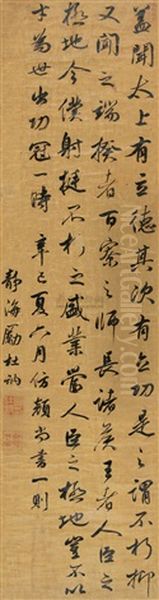 蓋聞太上有立德其次有立功是之謂不朽抑
又聞之端揆者百寮之師長諸矦王者人臣之
極地今僕射挺不朽之盛業當人臣之極地豈不以
才為世出功冠一時 辛巳夏六月仿顏尚書一則
靜海勵杜訥